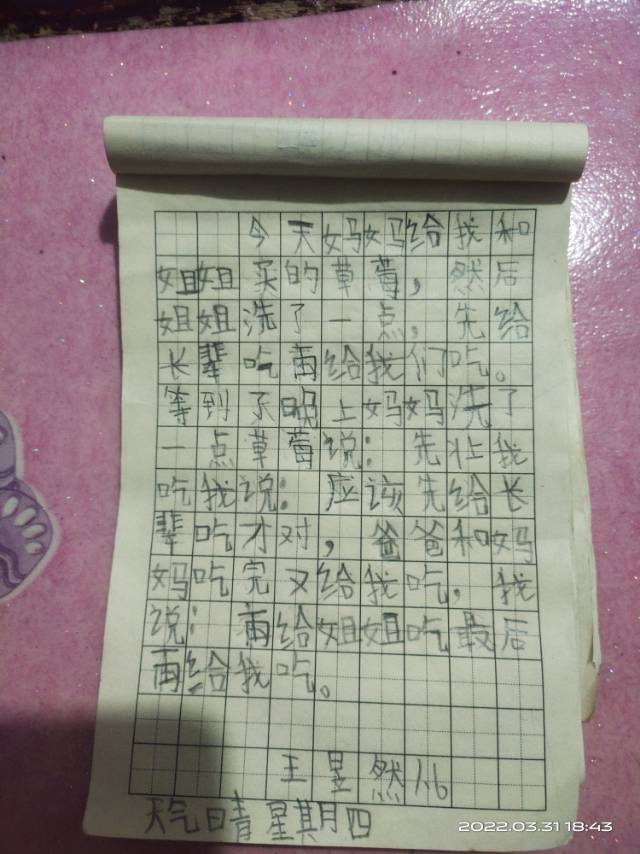 今天妈妈给我和
姐姐买的草莓，然后
姐姐洗了一点，先给
长辈吃再给我们吃。
等到了晚上妈妈洗了
一点草莓说：先让我
吃我说：应该先给长
辈吃才对，爸爸和妈
妈吃完又给我吃，我
说：再给姐姐吃最后
再给我吃。
王昱然 1.6
天气晴星期四
2022.03.31 18:43